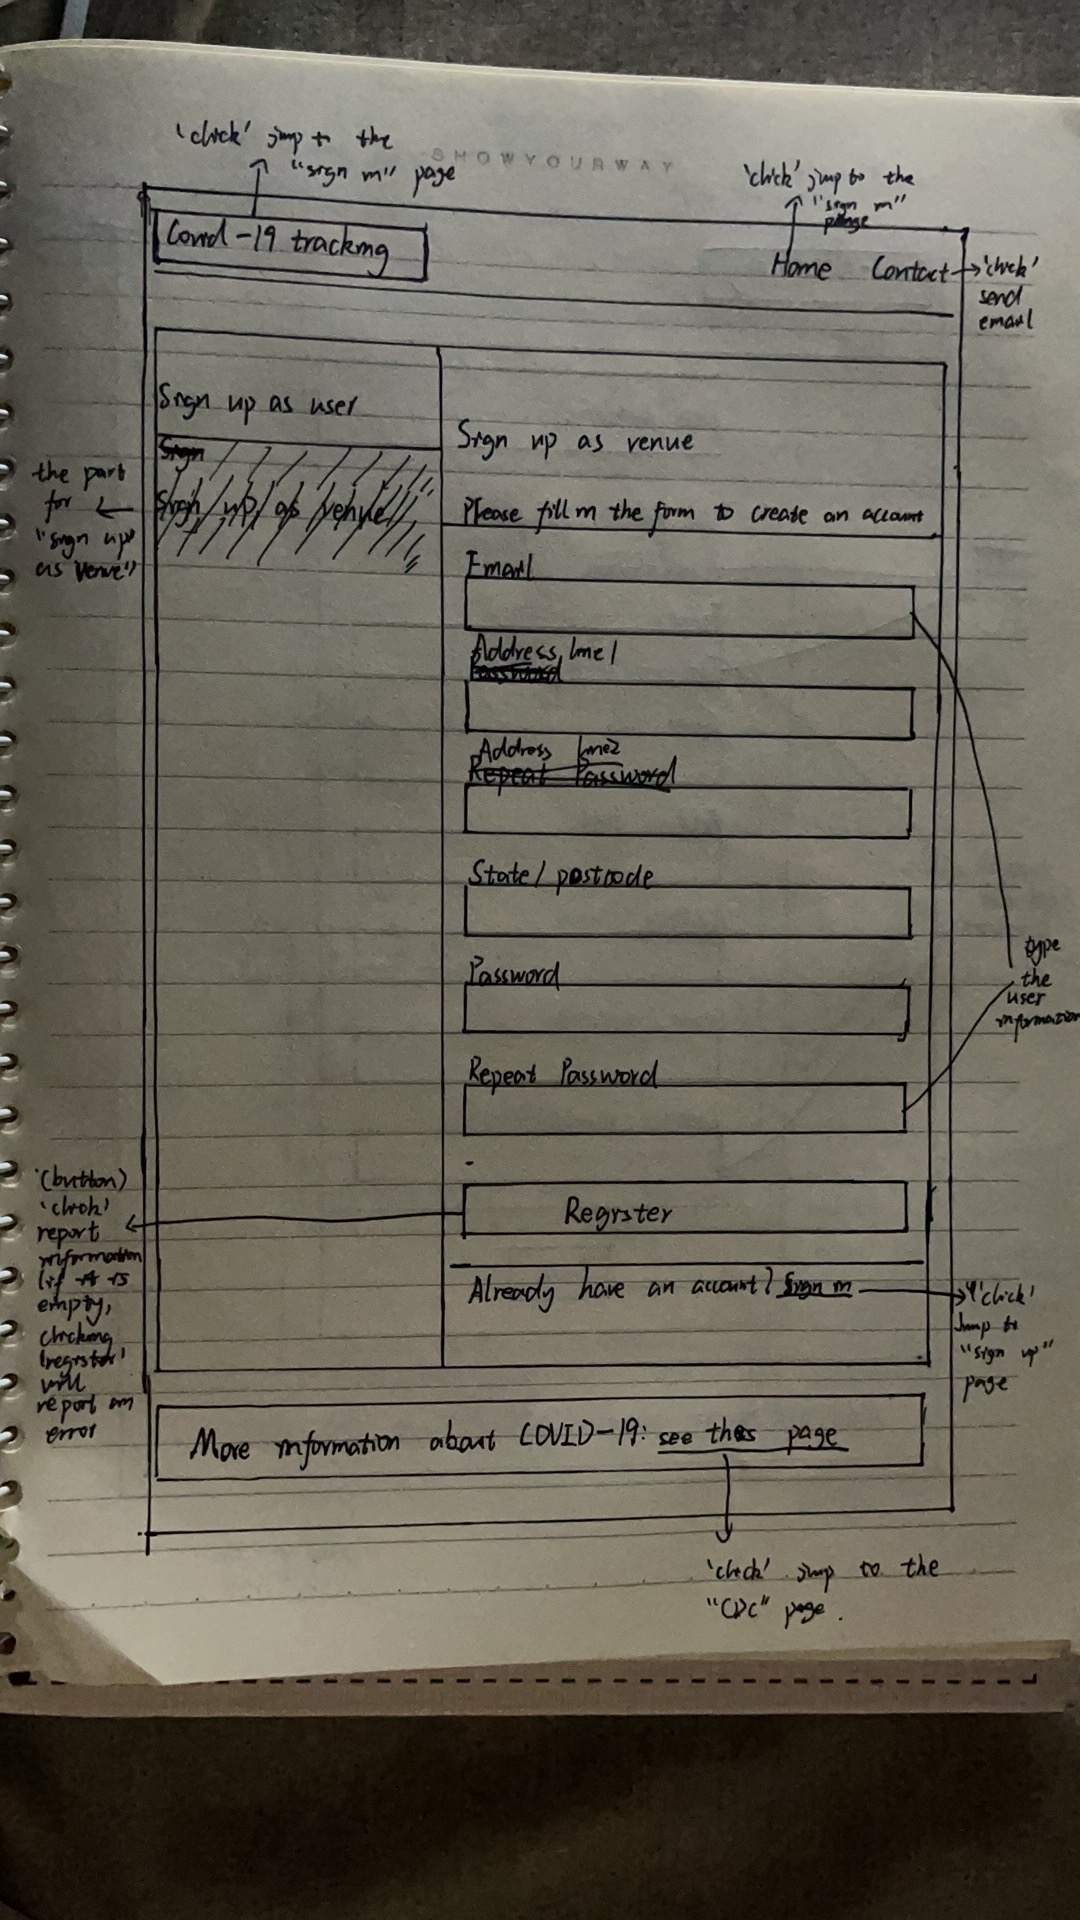 'click' jump to the
"sign in" page
SHOWYOURWAY
'click' jump to the
"sign in"
page
Covid-19 tracking
Home Contact
'click'
send
email
Sign up as user
Sign
Sign up as venue
the part
for
"sign up
as venue"
Sign up as venue
Please fill in the form to create an account
Email
Address line1
Password
Address line2
Repeat Password
State/ postcode
Password
Repeat Password
type
the
user
information
Register
(button)
'click'
report
information
(if it is
empty,
clicking
'register'
will
report an
error
Already have an account? Sign in
'click'
Jump to
"sign up"
page
More information about COVID-19: see this page
'click' jump to the
"CDC" page.